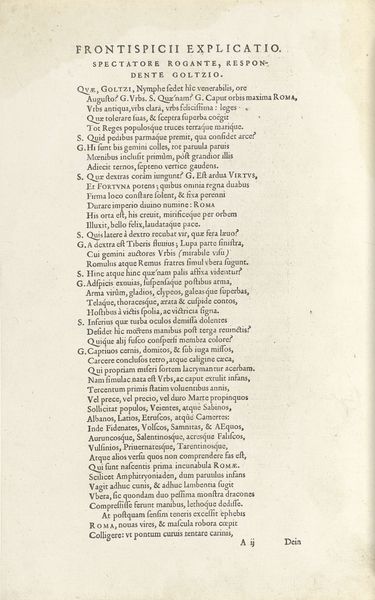 FRONTISPICII EXPLICATIO.
SPECTATORE ROGANTE, RESPON-
DENTE GOLTZIO.
QVÆ, GOLTZI, Nymphe sedet hîc venerabilis, ore
Augusto? G. Vrbs. S. Quæ nam? G. Caput orbis maxima ROMA,
Vrbs antiqua, vrbs clara, vrbs felicissima: leges
Quæ tolerare suas, & sceptra superba coëgit
Tot Reges populosque truces terraque marique.
S. Quid pedibus parmaque premit, qua considet arce?
G. Hi sunt bis gemini colles, tot paruula paruis
Mœnibus inclusit primùm, pòst grandior illis
Adiecit ternos, septeno vertice gaudens.
S. Quæ dextras coràm iungunt? G. Est ardua VIRTVS,
Et FORTVNA potens; quibus omnia regna duabus
Firma loco constare solent, & fixa perenni
Durare imperio diuino numine: ROMA
His orta est, his creuit, mirificeque per orbem
Illuxit, bello felix, laudataque pace.
S. Quis latere à dextro recubat vir, quæ fera læuo?
G. A dextra est Tiberis fluuius; Lupa parte sinistra,
Cui gemini auctores Vrbis (mirabile visu)
Romulus atque Remus fratres simul vbera sugunt.
S. Hinc atque hinc quæ nam palis affixa videntur?
G. Adspicis exuuias, suspensaque postibus arma,
Arma virûm, gladios, clypeos, galeasque superbas,
Telaque, thoracesque, ærata & cuspide contos,
Hostibus à victis spolia, ac victricia signa.
S. Inferius quæ turba oculos demissa dolentes
Desidet hîc mœrens manibus post terga reuinctis?
Quique alij fusco conspersi membra colore?
G. Captiuos cernis, domitos, & sub iuga missos,
Carcere conclusos retro, atque caligine cæca,
Qui propriam miseri sortem lacrymantur acerbam.
Nam simulac nata est Vrbs, ac caput extulit infans,
Tercentum primis statim voluentibus annis,
Vel prece, vel precio, vel duro Marte propinquos
Sollicitat populos, Veientes, atque Sabinos,
Albanos, Latios, Etruscos, atque Camertes:
Inde Fidenates, Volscos, Samnitas, & AEquos,
Auruncosque, Salentinosque, acresque Faliscos,
Vulsinios, Priuernatesque, Tarentinosque,
Atque alios versu quos non comprendere fas est,
Qui sunt nascentis prima incunabula ROMÆ.
Scilicet Amphitryoniaden, dum paruulus infans
Vagit adhuc cunis, & adhuc lambentia sugit
Vbera, sic quondam duo pessima monstra dracones
Compressisse ferunt manibus, lethoque dedisse.
At postquam sensim teneris excessit ephebis
ROMA, nouas vires, & mascula robora cœpit
Colligere: vt pontum curuis tentare carinis,
A ij Dein